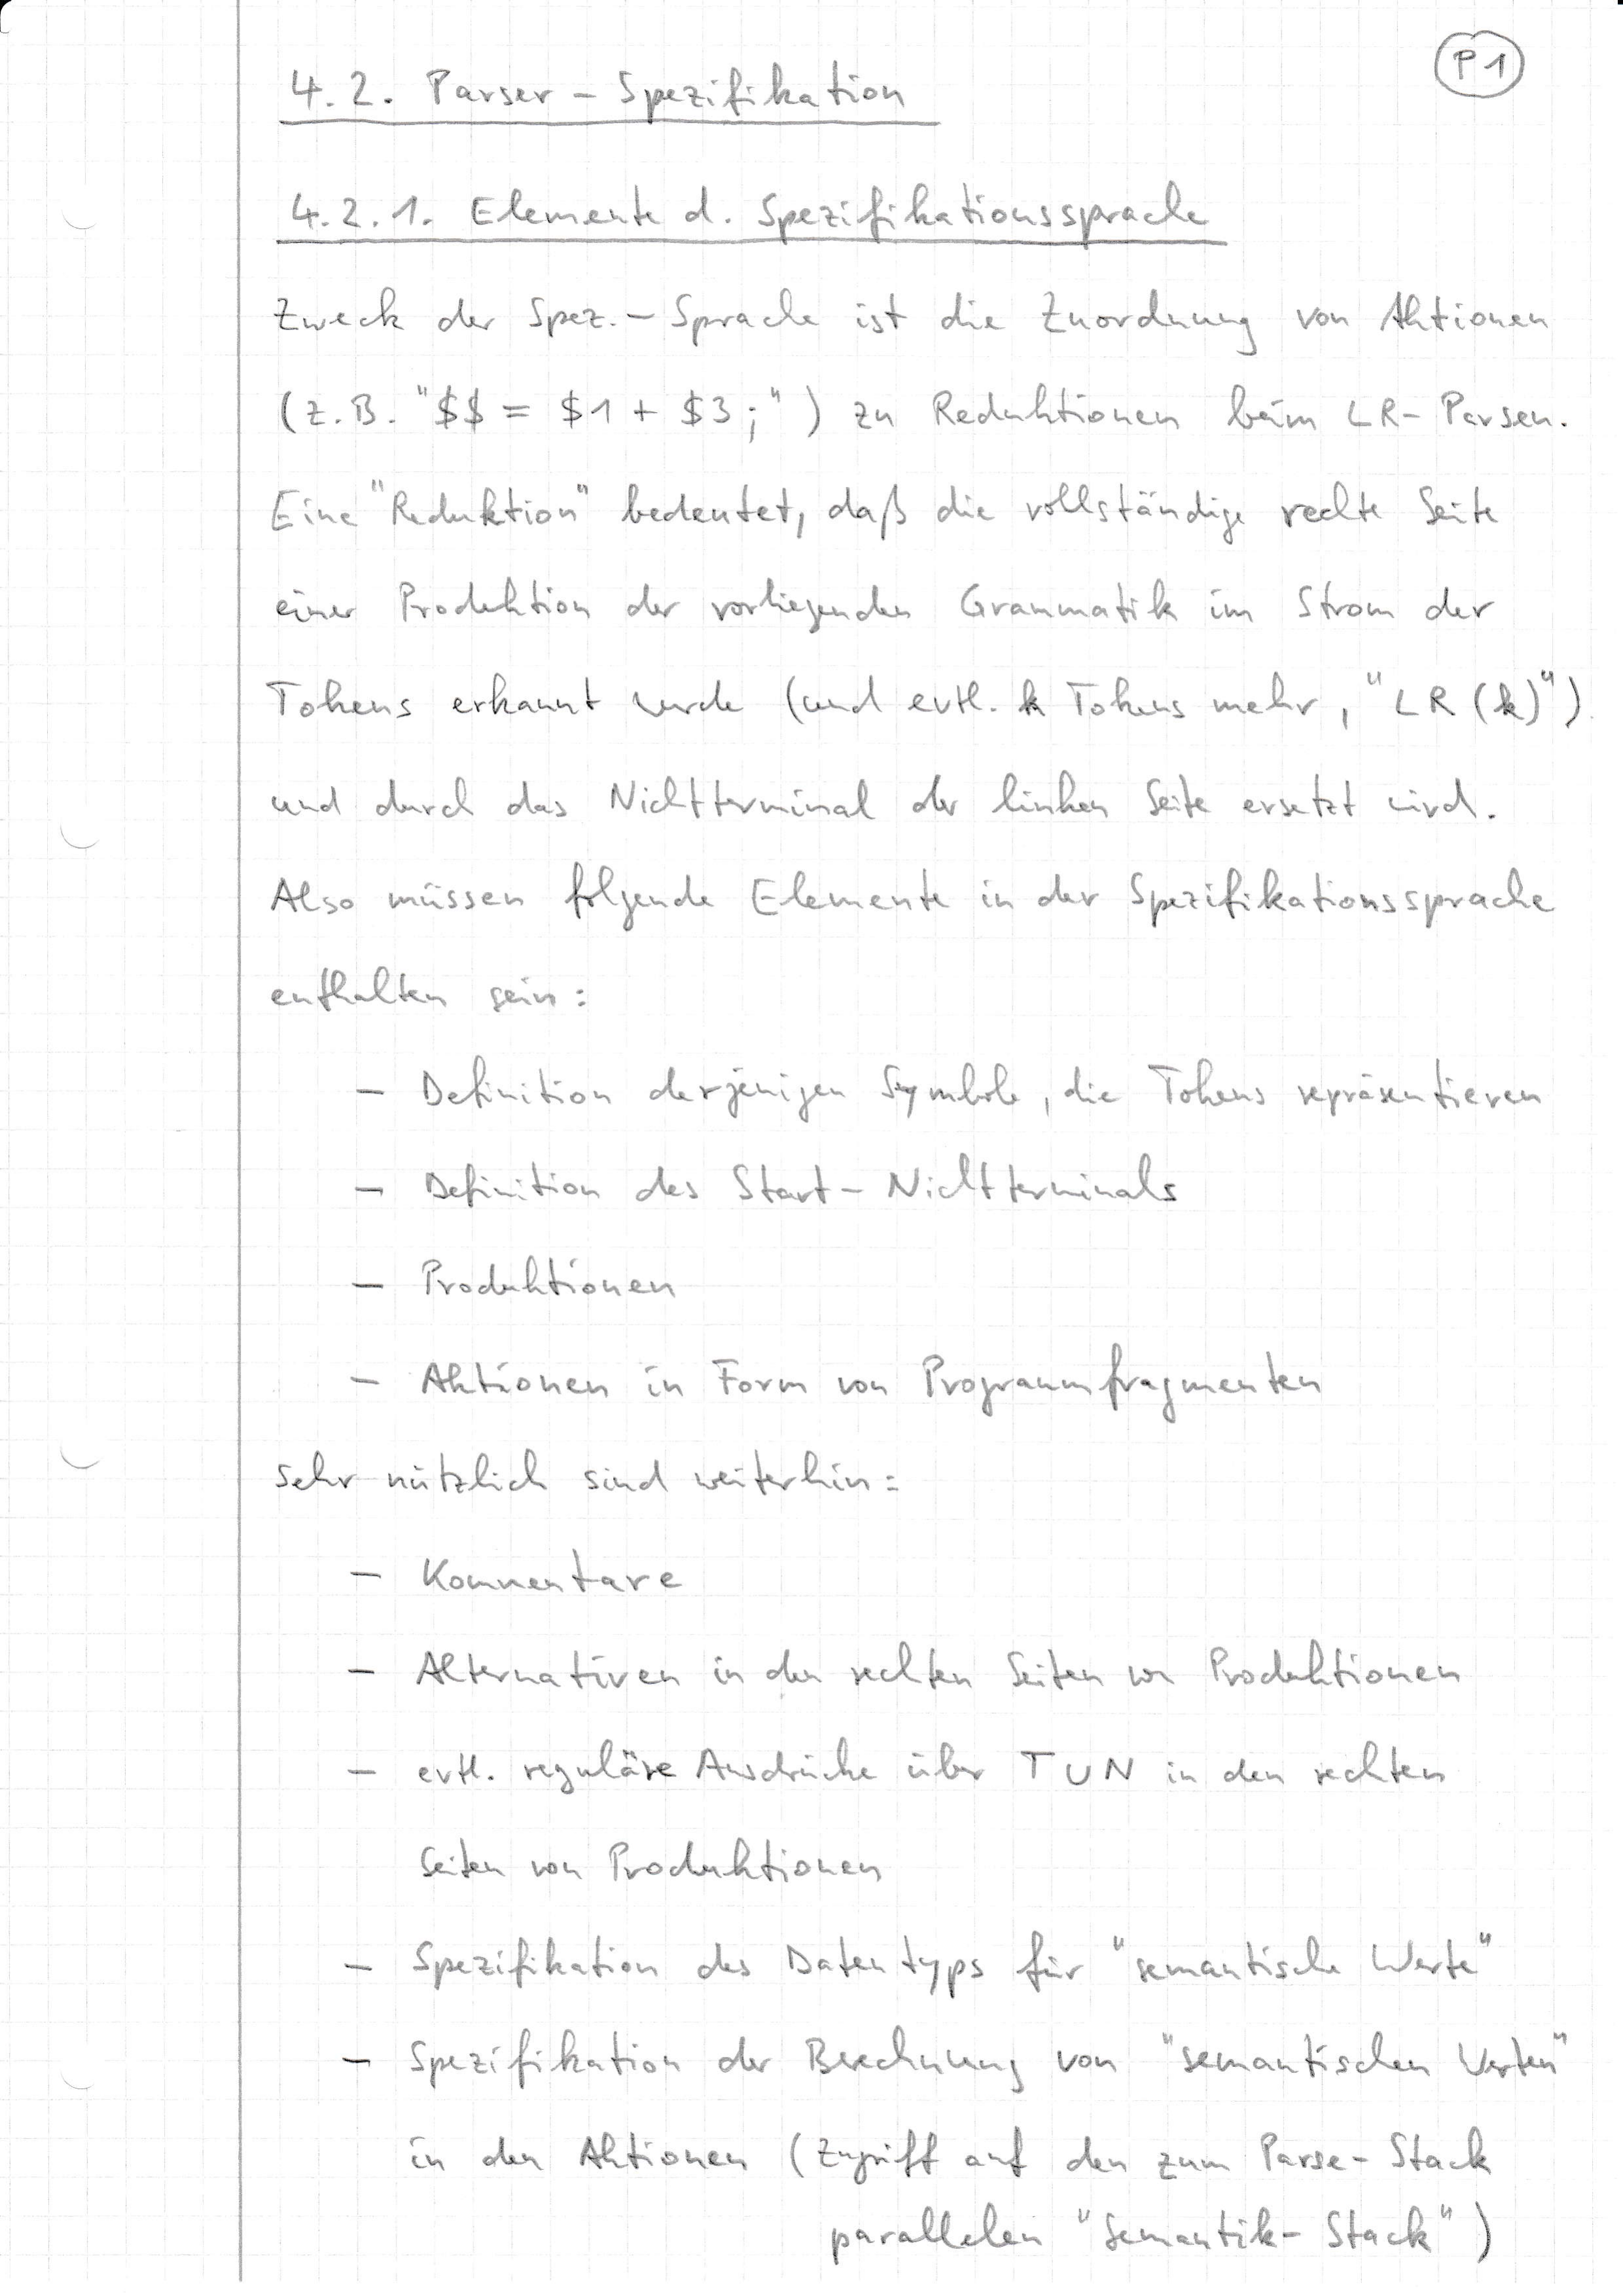 P1
4.2. Parser - Spezifikation
4.2.1. Elemente d. Spezifikationssprache
Zweck der Spez.- Sprache ist die Zuordnung von Aktionen
(z.B. "$$ = $1 + $3;") zu Reduktionen beim LR-Parsen.
Eine "Reduktion" bedeutet, daß die vollständige rechte Seite
einer Produktion der vorliegenden Grammatik im Strom der
Tokens erkannt wurde (und evtl. k Tokens mehr, "LR(k)")
und durch das Nichtterminal der linken Seite ersetzt wird.
Also müssen folgende Elemente in der Spezifikationssprache
enthalten sein:
- Definition derjenigen Symbole, die Tokens repräsentieren
- Definition des Start-Nichtterminals
- Produktionen
- Aktionen in Form von Programmfragmenten
Sehr nützlich sind weiterhin:
- Kommentare
- Alternativen in den rechten Seiten von Produktionen
- evtl. reguläre Ausdrücke über T ∪ N in den rechten
Seiten von Produktionen
- Spezifikation des Datentyps für "semantische Werte"
- Spezifikation der Berechnung von "semantischen Werten"
in den Aktionen (Zugriff auf den zum Parse-Stack
parallelen "Semantik-Stack")